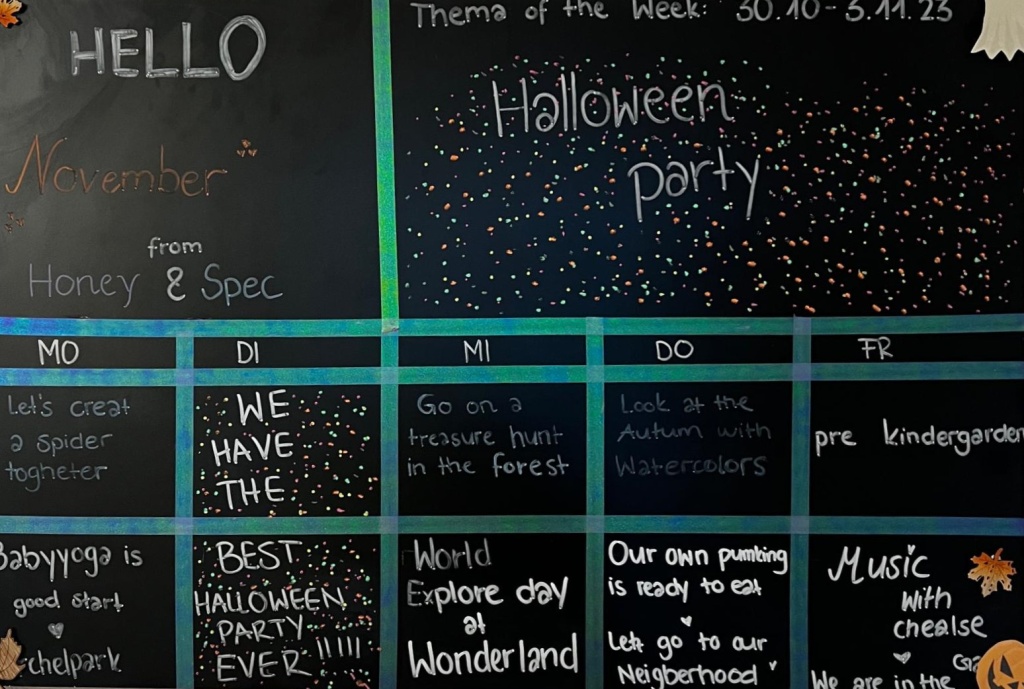 HELLO
November
from
Honey & Spec
Thema of the Week: 30.10-3.11.23
Halloween
party
MO
DI
MI
DO
FR
Let's creat
a spider
togheter
WE
HAVE
THE
Go on a
treasure hunt
in the forest
Look at the
Autum with
Watercolors
pre kindergarden
Babyyoga is
good start
chelpark
BEST
HALLOWEEN
PARTY
EVER !!!!!
World
Explore day
at
Wonderland
Our own pumking
is ready to eat
Let go to our
Neigberhood
Music
with
chealse
We are in the